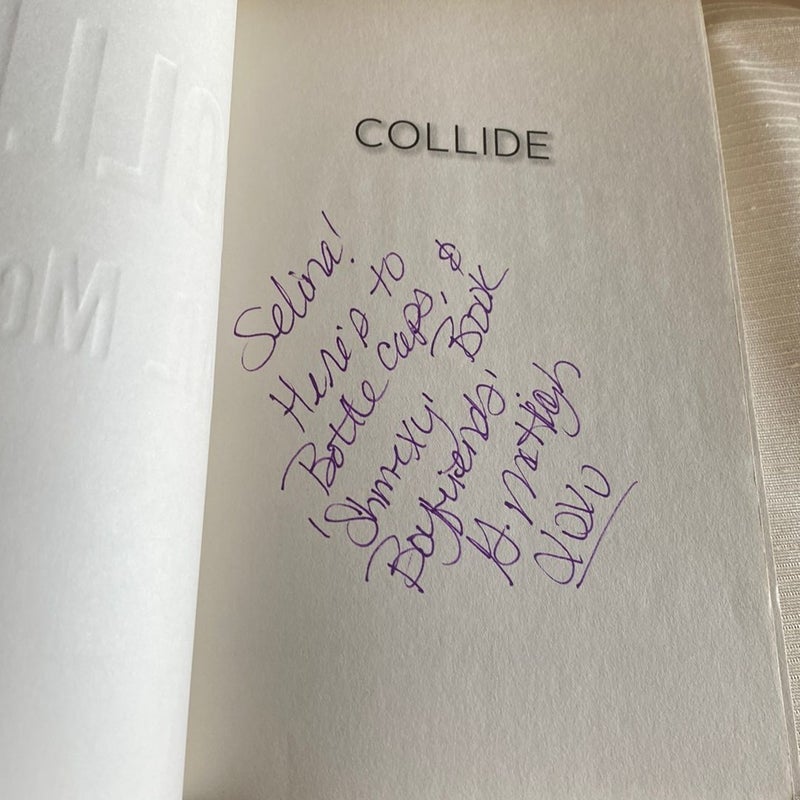 COLLIDE
Selina!
Here's to
Bottle caps, &
'Shmexy' Book
Boyfriends!
G. McHugh
XOXO